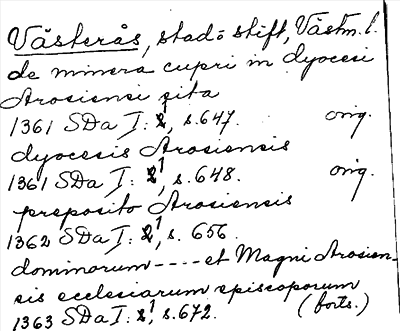 Västerås, stad o stift, Västm. l.
de minera cupri in dyocesi
Arosiensi sita
1361 SDa I: 1, s. 647. orig.
dyocesis Arosiensis
1361 SDa I: 1, s. 648. orig.
preposito Arosiensis
1362 SDa I: 1, s. 656.
dominorum ---- et Magni Arosien-
sis ecclesiarum episcoporum
1363 SDa I: 1, s. 672. (forts.)